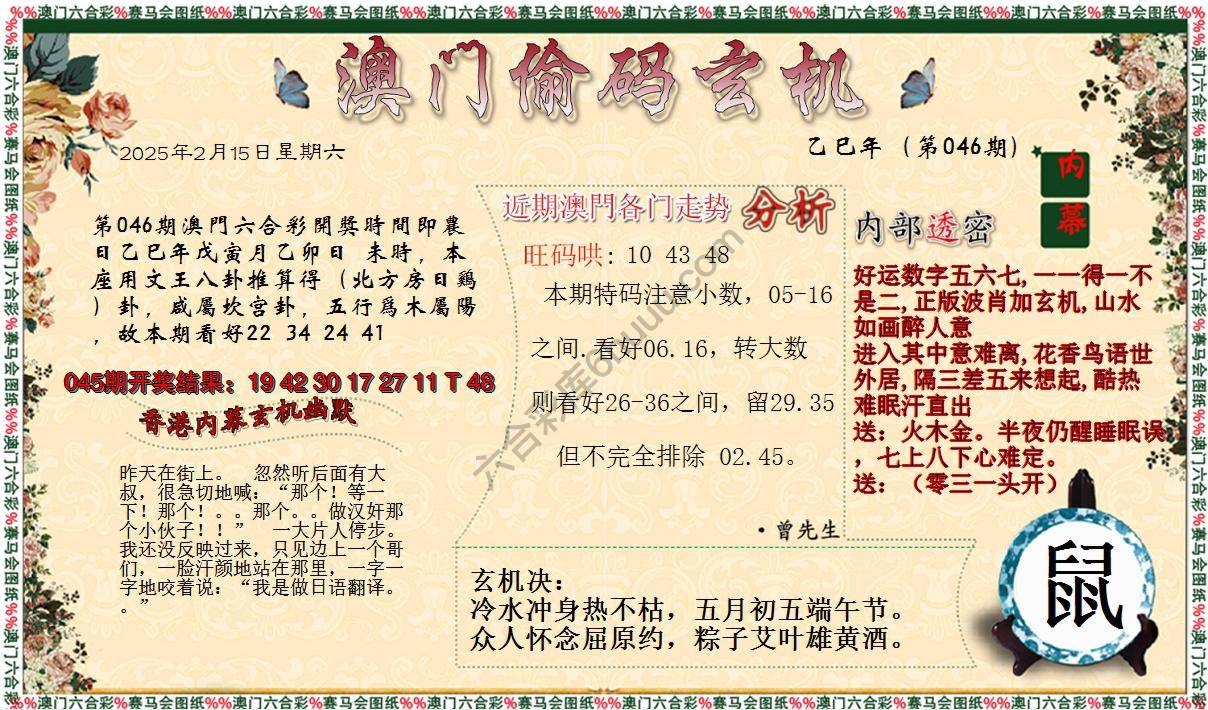 %%澳门六合彩%赛马会图纸%%澳门六合彩%赛马会图纸%%澳门六合彩%赛马会图纸%%澳门六合彩%赛马会图纸%%澳门六合彩%赛马会图纸%%澳门六合彩%赛马会图纸%%
澳门偷码玄机
2025年2月15日星期六
乙巳年（第046期）
内
幕
第046期澳門六合彩開獎時間即農
日乙巳年戊寅月乙卯日 未時，本
座用文王八卦推算得（北方房日鷄
）卦，咸屬坎宫卦，五行爲木屬陽
，故本期看好22 34 24 41
045期开奖结果：19 42 30 17 27 11 T 48
香港内幕玄机幽默
昨天在街上。 忽然听后面有大
叔，很急切地喊：“那个！等一
下！那个！。。那个。。做汉奸那
个小伙子！！” 一大片人停步。
我还没反映过来，只见边上一个哥
们，一脸汗颜地站在那里，一字一
字地咬着说：“我是做日语翻译。
。”
近期澳門各门走势 分析
旺码哄: 10 43 48
本期特码注意小数，05-16
之间.看好06.16，转大数
则看好26-36之间，留29.35
但不完全排除 02.45。
·曾先生
内部透密
好运数字五六七,一一得一不
是二,正版波肖加玄机,山水
如画醉人意
进入其中意难离,花香鸟语世
外居,隔三差五来想起,酷热
难眠汗直出
送：火木金。半夜仍醒睡眠误
，七上八下心难定。
送：（零三一头开）
玄机决：
冷水冲身热不枯，五月初五端午节。
众人怀念屈原约，粽子艾叶雄黄酒。
鼠
%%澳门六合彩%赛马会图纸%%澳门六合彩%赛马会图纸%%澳门六合彩%赛马会图纸%%澳门六合彩%赛马会图纸%%澳门六合彩%赛马会图纸%%澳门六合彩%赛马会图纸%%